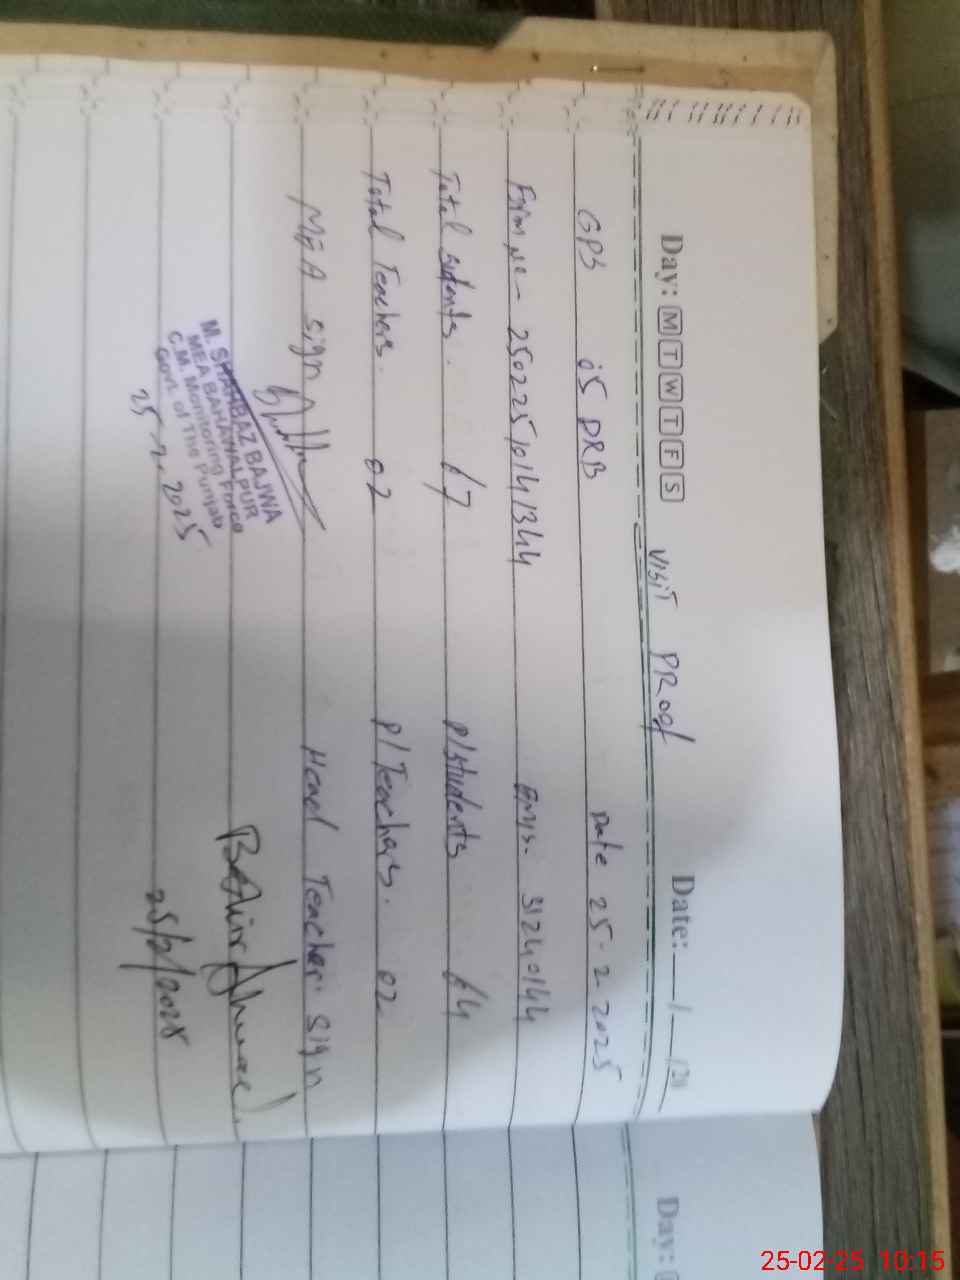 Day: M T W T F S Date: / /20
VISIT PROof
GPS 05 DRB Date 25-2-2025
Form No - 25022510141344 Emis. 31240144
Total Sudents. 67 P/Students 64
Total Teachers. 02 P/Teachers. 02
MEA sign Head Teacher sign
M. SHAHBAZ BAJWA
MEA BAHAWALPUR
C.M. Monitoring Force
Govt. of The Punjab
25-2-2025 25/2/2025
Day:
25-02-25 10:15